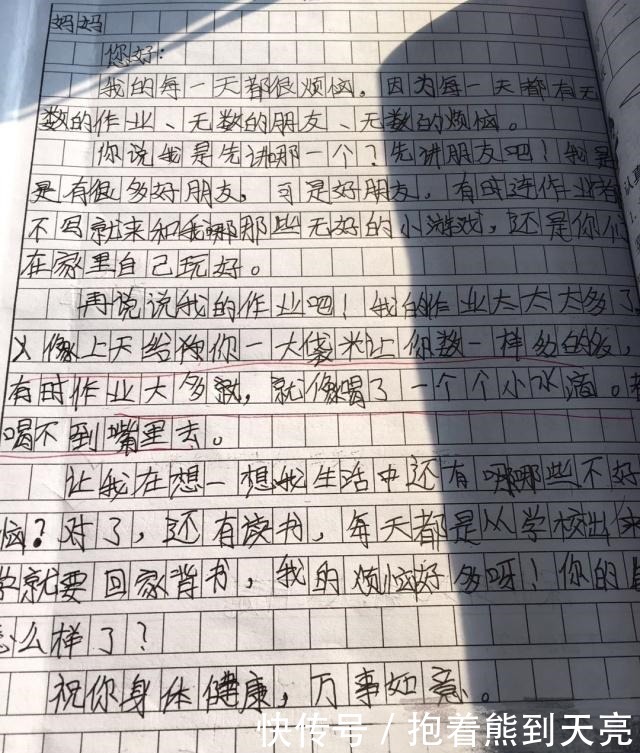 妈妈
你好：
我的每一天都很烦恼。因为每一天都有无
数的作业、无数的朋友、无数的烦恼。
你说我是先讲哪一个？先讲朋友吧！我是
是有很多好朋友，可是好朋友，有时连作业都
不写就来和我哪那些无好的小游戏，还是你们
在家里自己玩好。
再说说我的作业吧！我的作业太太太多了
像上天给你一大袋米让你数一样多的多，
有时作业大多就，就像喝了一个个小水滴。都
喝不到嘴里去。
让我在想一想我生活中还有哪哪些不好
恼？对了，还有读书，每天都是从学校出来
学就要回家背书，我的烦恼好多呀！你的
怎么样了？
祝你身体健康，万事如意。
快传号 / 抱着熊到天亮